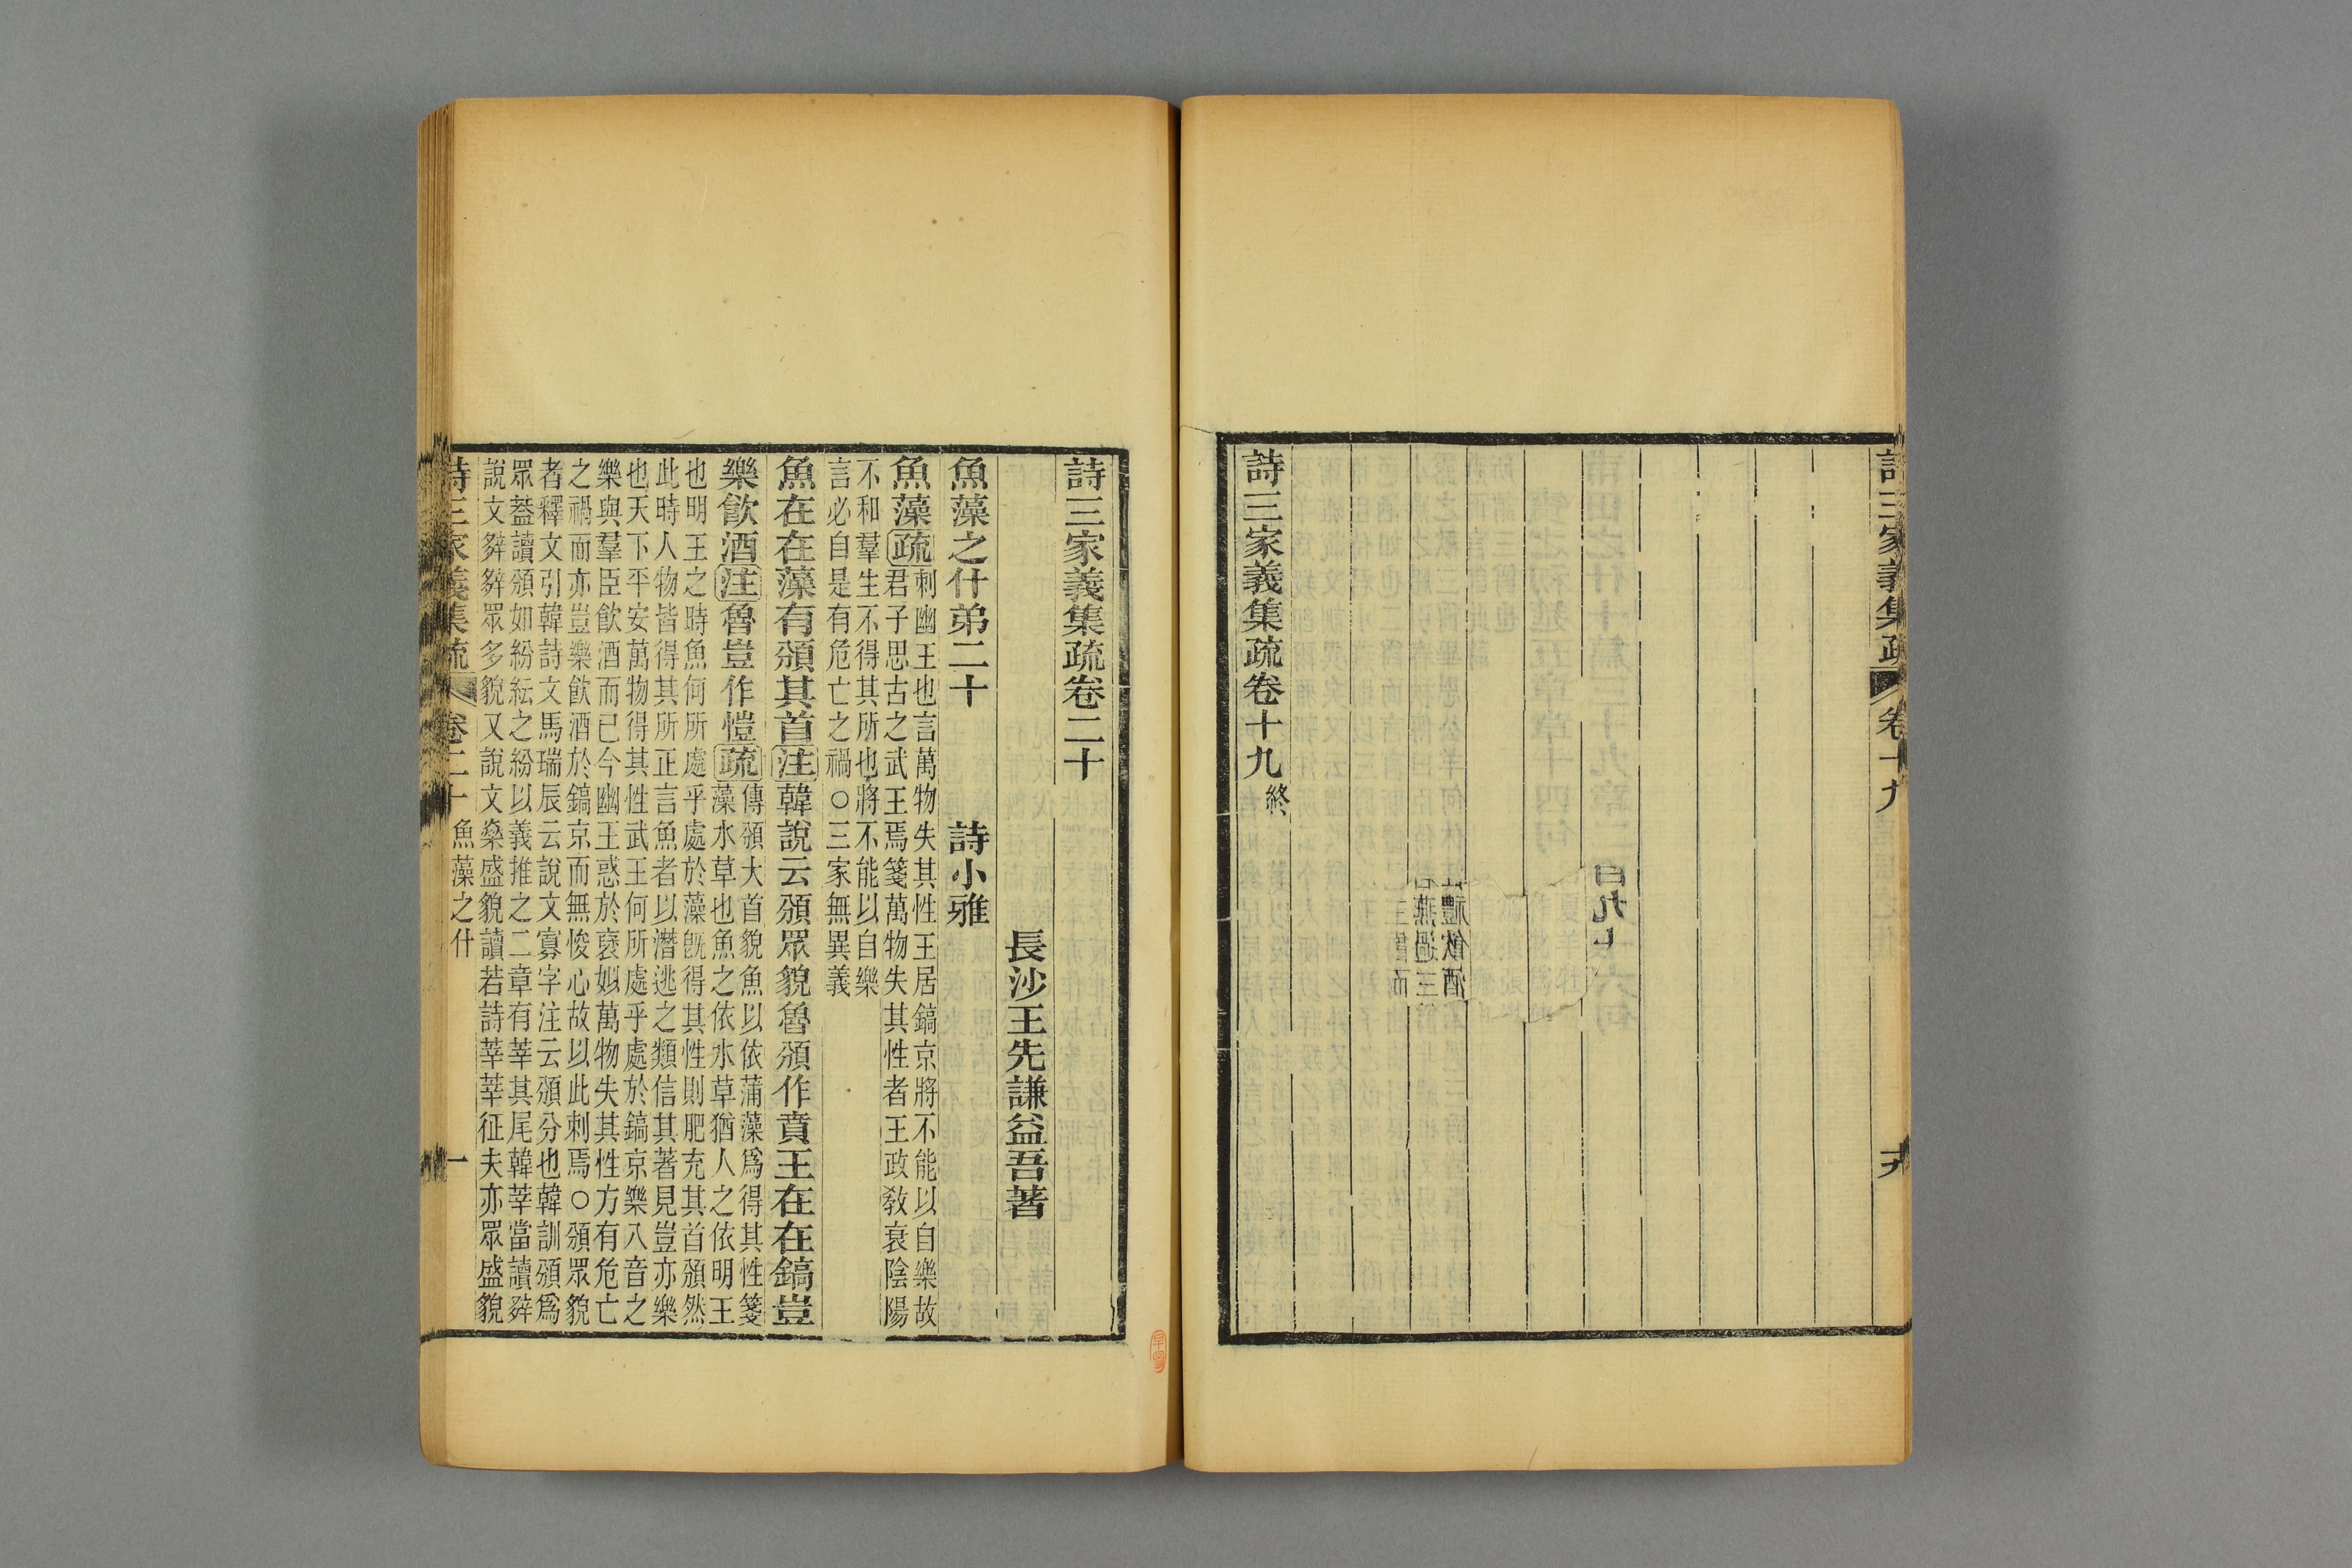 詩三家義集疏
卷十九
詩三家義集疏卷十九終
禮飲酒
燕過三
詩三家義集疏卷二十
長沙王先謙益吾著
魚藻之什弟二十　詩小雅
魚藻疏刺幽王也言萬物失其性王居鎬京將不能以自樂故
君子思古之武王焉箋萬物失其性者王政敎衰陰陽
不和羣生不得其所也將不能以自樂
言必自是有危亡之禍○三家無異義
魚在在藻有頒其首注韓說云頒眾貌魯頒作賁王在在鎬豈
樂飲酒注魯豈作愷疏傳頒大首貌魚以依蒲藻爲得其性箋
藻水草也魚之依水草猶人之依明王
也明王之時魚何所處乎處於藻旣得其性則肥充其首頒然
此時人物皆得其所正言魚者以潛逃之類信其著見豈亦樂
也天下平安萬物得其性武王何所處乎處於鎬京樂八音之
樂與羣臣飲酒而已今幽王惑於褒姒萬物失其性方有危亡
之禍而亦豈樂飲酒於鎬京而無悛心故以此刺焉○頒眾貌
者釋文引韓詩文馬瑞辰云說文寡字注云頒分也韓訓頒爲
眾葢讀頒如紛紜之紛以義推之二章有莘其尾韓莘當讀㚘
說文㚘㚘眾多貌又說文燊盛貌讀若詩莘莘征夫亦眾盛貌
詩三家義集疏
卷二十
魚藻之什
一